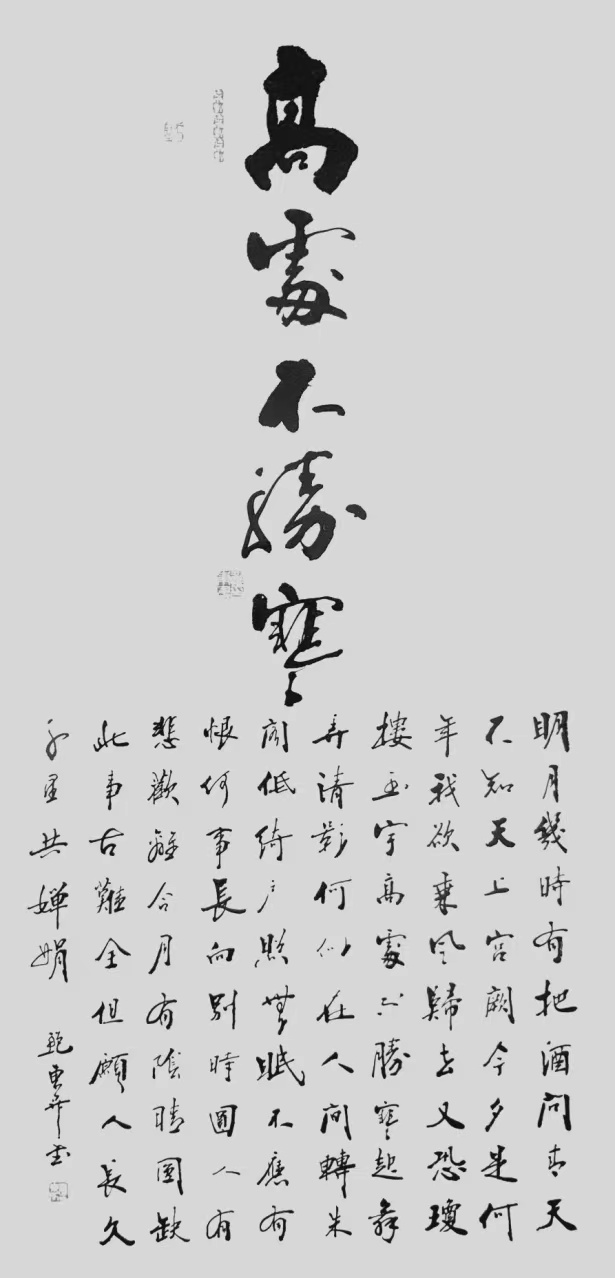 高處不勝寒
明月幾時有把酒问青天
不知天上宮闕今夕是何
年我欲乘风歸去又恐瓊
樓玉宇高處不勝寒起舞
弄清影何似在人间轉朱
阁低绮户照無眠不應有
恨何事長向别時圓人有
悲歡離合月有陰晴圓缺
此事古難全但願人長久
千里共嬋娟